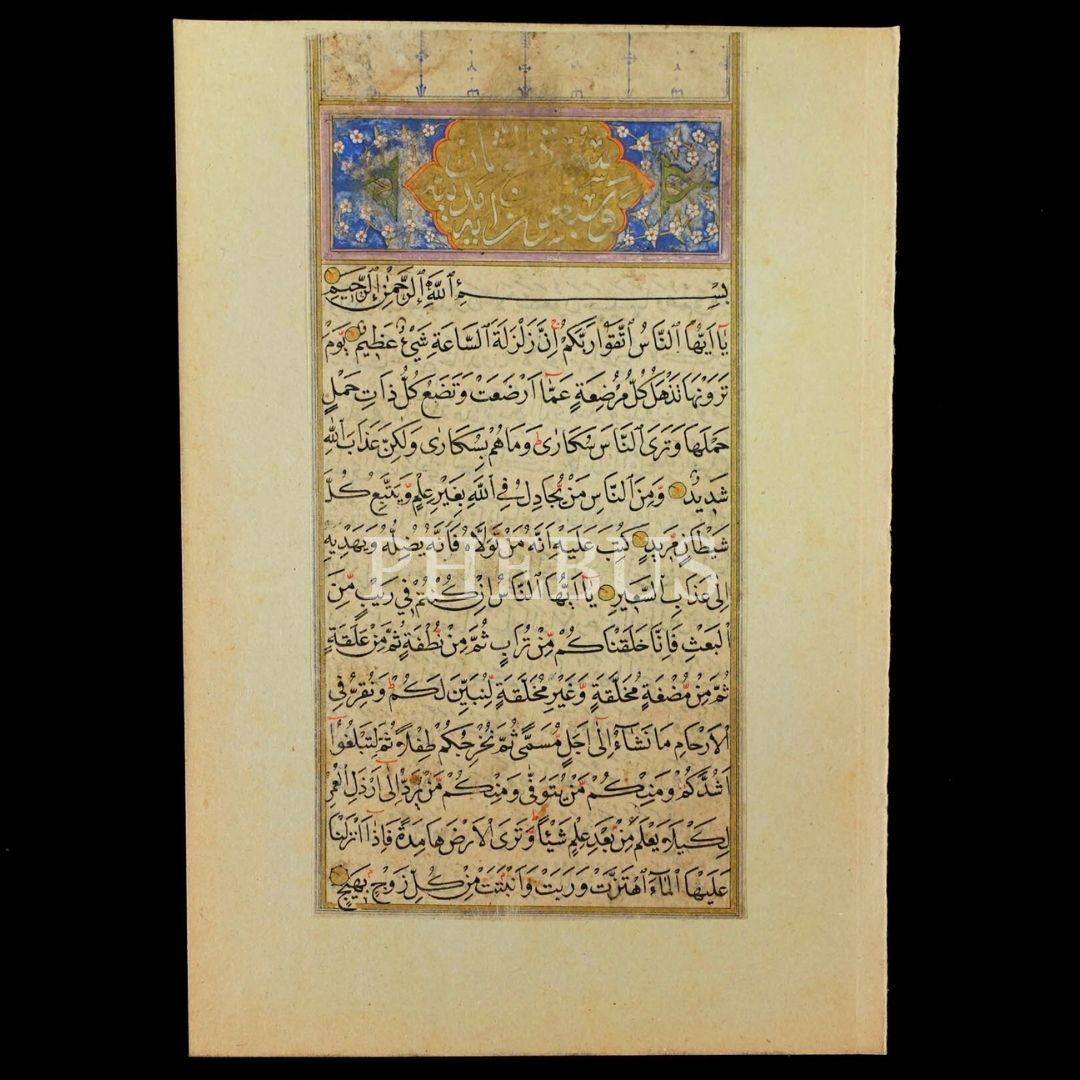 وسبعون آية مدنية
بِسْمِ اللّٰهِ الرَّحْمٰنِ الرَّحِيمِ
يَا اَيُّهَا النَّاسُ اتَّقُوا رَبَّكُمْ اِنَّ زَلْزَلَةَ السَّاعَةِ شَيْءٌ عَظِيمٌ يَوْمَ
تَرَوْنَهَا تَذْهَلُ كُلُّ مُرْضِعَةٍ عَمَّا اَرْضَعَتْ وَتَضَعُ كُلُّ ذَاتِ حَمْلٍ
حَمْلَهَا وَتَرَى النَّاسَ سُكَارٰى وَمَا هُمْ بِسُكَارٰى وَلٰكِنَّ عَذَابَ اللّٰهِ
شَدِيدٌ وَمِنَ النَّاسِ مَنْ يُجَادِلُ فِي اللّٰهِ بِغَيْرِ عِلْمٍ وَيَتَّبِعُ كُلَّ
شَيْطَانٍ مَرِيدٍ كُتِبَ عَلَيْهِ اَنَّهُ مَنْ تَوَلَّاهُ فَاَنَّهُ يُضِلُّهُ وَيَهْدِيهِ
PHEBUS
اِلٰى عَذَابِ السَّعِيرِ يَا اَيُّهَا النَّاسُ اِنْ كُنْتُمْ فِي رَيْبٍ مِنَ
الْبَعْثِ فَاِنَّا خَلَقْنَاكُمْ مِنْ تُرَابٍ ثُمَّ مِنْ نُطْفَةٍ ثُمَّ مِنْ عَلَقَةٍ
ثُمَّ مِنْ مُضْغَةٍ مُخَلَّقَةٍ وَغَيْرِ مُخَلَّقَةٍ لِنُبَيِّنَ لَكُمْ وَنُقِرُّ فِي
الْاَرْحَامِ مَا نَشَاءُ اِلٰى اَجَلٍ مُسَمًّى ثُمَّ نُخْرِجُكُمْ طِفْلًا ثُمَّ لِتَبْلُغُوا
اَشُدَّكُمْ وَمِنْكُمْ مَنْ يُتَوَفّٰى وَمِنْكُمْ مَنْ يُرَدُّ اِلٰى اَرْذَلِ الْعُمُرِ
لِكَيْلَا يَعْلَمَ مِنْ بَعْدِ عِلْمٍ شَيْئًا وَتَرَى الْاَرْضَ هَامِدَةً فَاِذَا اَنْزَلْنَا
عَلَيْهَا الْمَاءَ اهْتَزَّتْ وَرَبَتْ وَاَنْبَتَتْ مِنْ كُلِّ زَوْجٍ بَهِيجٍ